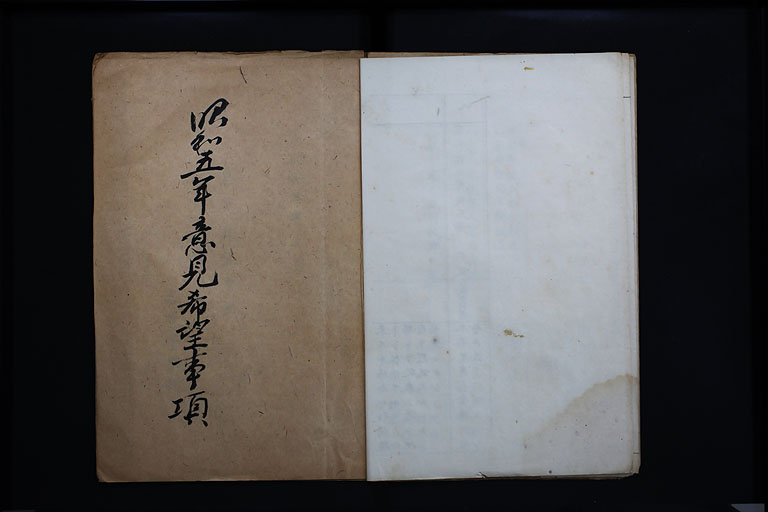 昭和五年意見希望事項